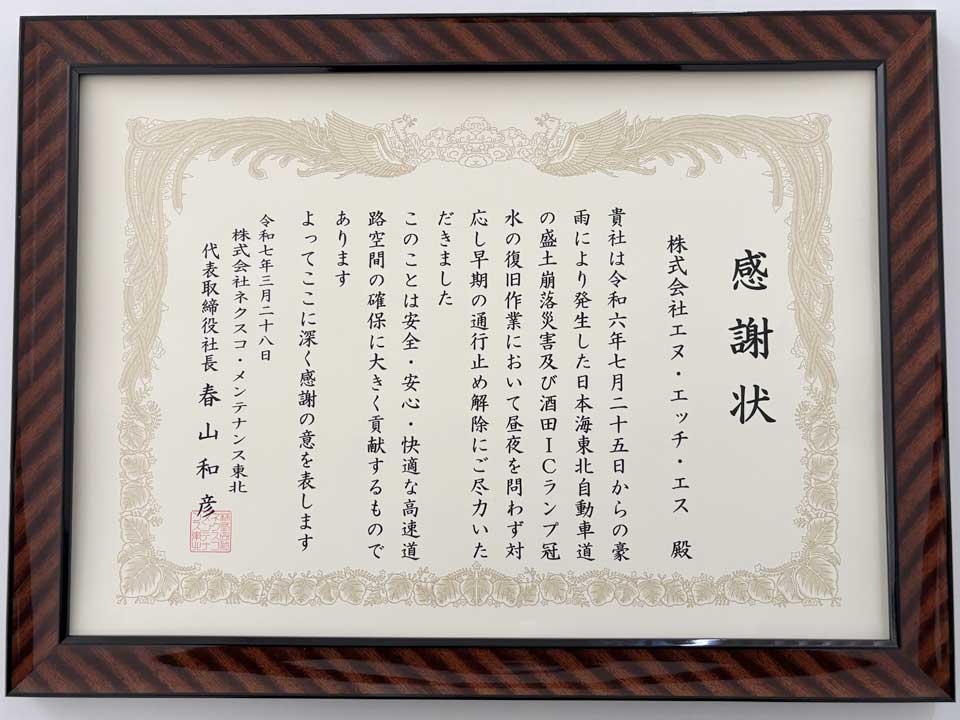 感謝状
株式会社エヌ・エッチ・エス 殿
貴社は令和六年七月二十五日からの豪
雨により発生した日本海東北自動車道
の盛土崩落災害及び酒田ICランプ冠
水の復旧作業において昼夜を問わず対
応し早期の通行止め解除にご尽力いた
だきました
このことは安全・安心・快適な高速道
路空間の確保に大きく貢献するもので
あります
よってここに深く感謝の意を表します
令和七年三月二十八日
株式会社ネクスコ・メンテナンス東北
代表取締役社長 春山和彦